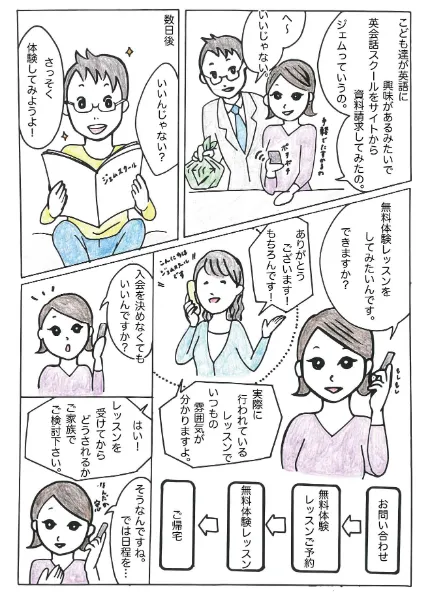 こども達が英語に
興味があるみたいで
英会話スクールをサイトから
資料請求してみたの。
ジェムっていうの。
へ〜
いいじゃない
ポチポチ
数日後
いいんじゃない?
さっそく
体験してみようよ!
ジェムスクール
無料体験レッスンを
してみたいんです。
できますか?
もしもし
ありがとう
ございます!
もちろんです!
こんにちは
ジェムスクール
です
実際に
行われている
レッスンで
いつもの
雰囲気が
分かりますよ。
入会を決めなくても
いいんですか?
はい!
レッスンを
受けてから
どうされるか
ご家族で
ご検討下さい。
そうなんですね。
では日程を…
お問い合わせ
無料体験
レッスンご予約
無料体験レッスン
ご帰宅